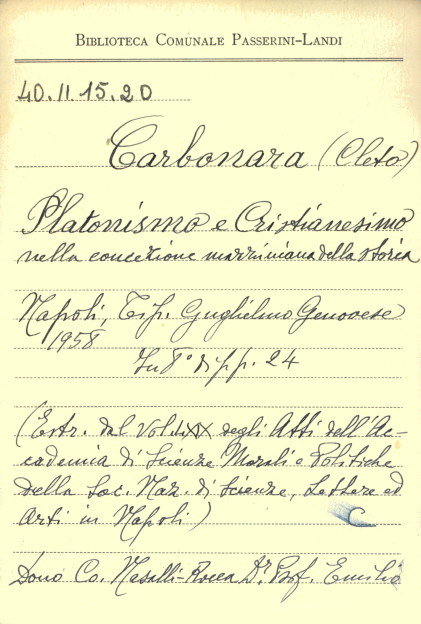 BIBLIOTECA COMUNALE PASSERINI-LANDI
40.II.15.20
Carbonara (Cleto)
Platonismo e Cristianesimo
nella concezione mazziniana della storia
Napoli, Tip. Guglielmo Genovese
1958
In 8° di pp. 24
(Estr. dal vol. LXIX degli Atti dell'Ac-
cademia di Scienze Morali e Politiche
della Soc. Naz. di Scienze, Lettere ed
Arti in Napoli)
C
Dono Co. Nasalli-Rocca Dr. Prof. Emilio